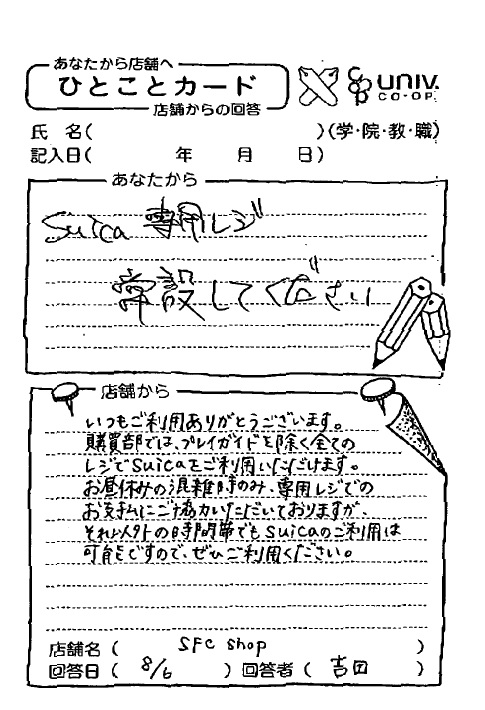 あなたから店舗へ
ひとことカード
店舗からの回答
UNIV.
CO-OP
氏 名( )(学・院・教・職)
記入日( 年 月 日)
あなたから
Suica 専用レジ
常設してください
店舗から
いつもご利用ありがとうございます。
購買部では、プレイガイドを除く全ての
レジでSuicaをご利用いただけます。
お昼休みの混雑時のみ、専用レジでの
お支払にご協力いただいておりますが、
それ以外の時間帯でもSuicaのご利用は
可能ですので、ぜひご利用ください。
店舗名( SFC shop )
回答日( 8/6 )回答者( 吉田 )